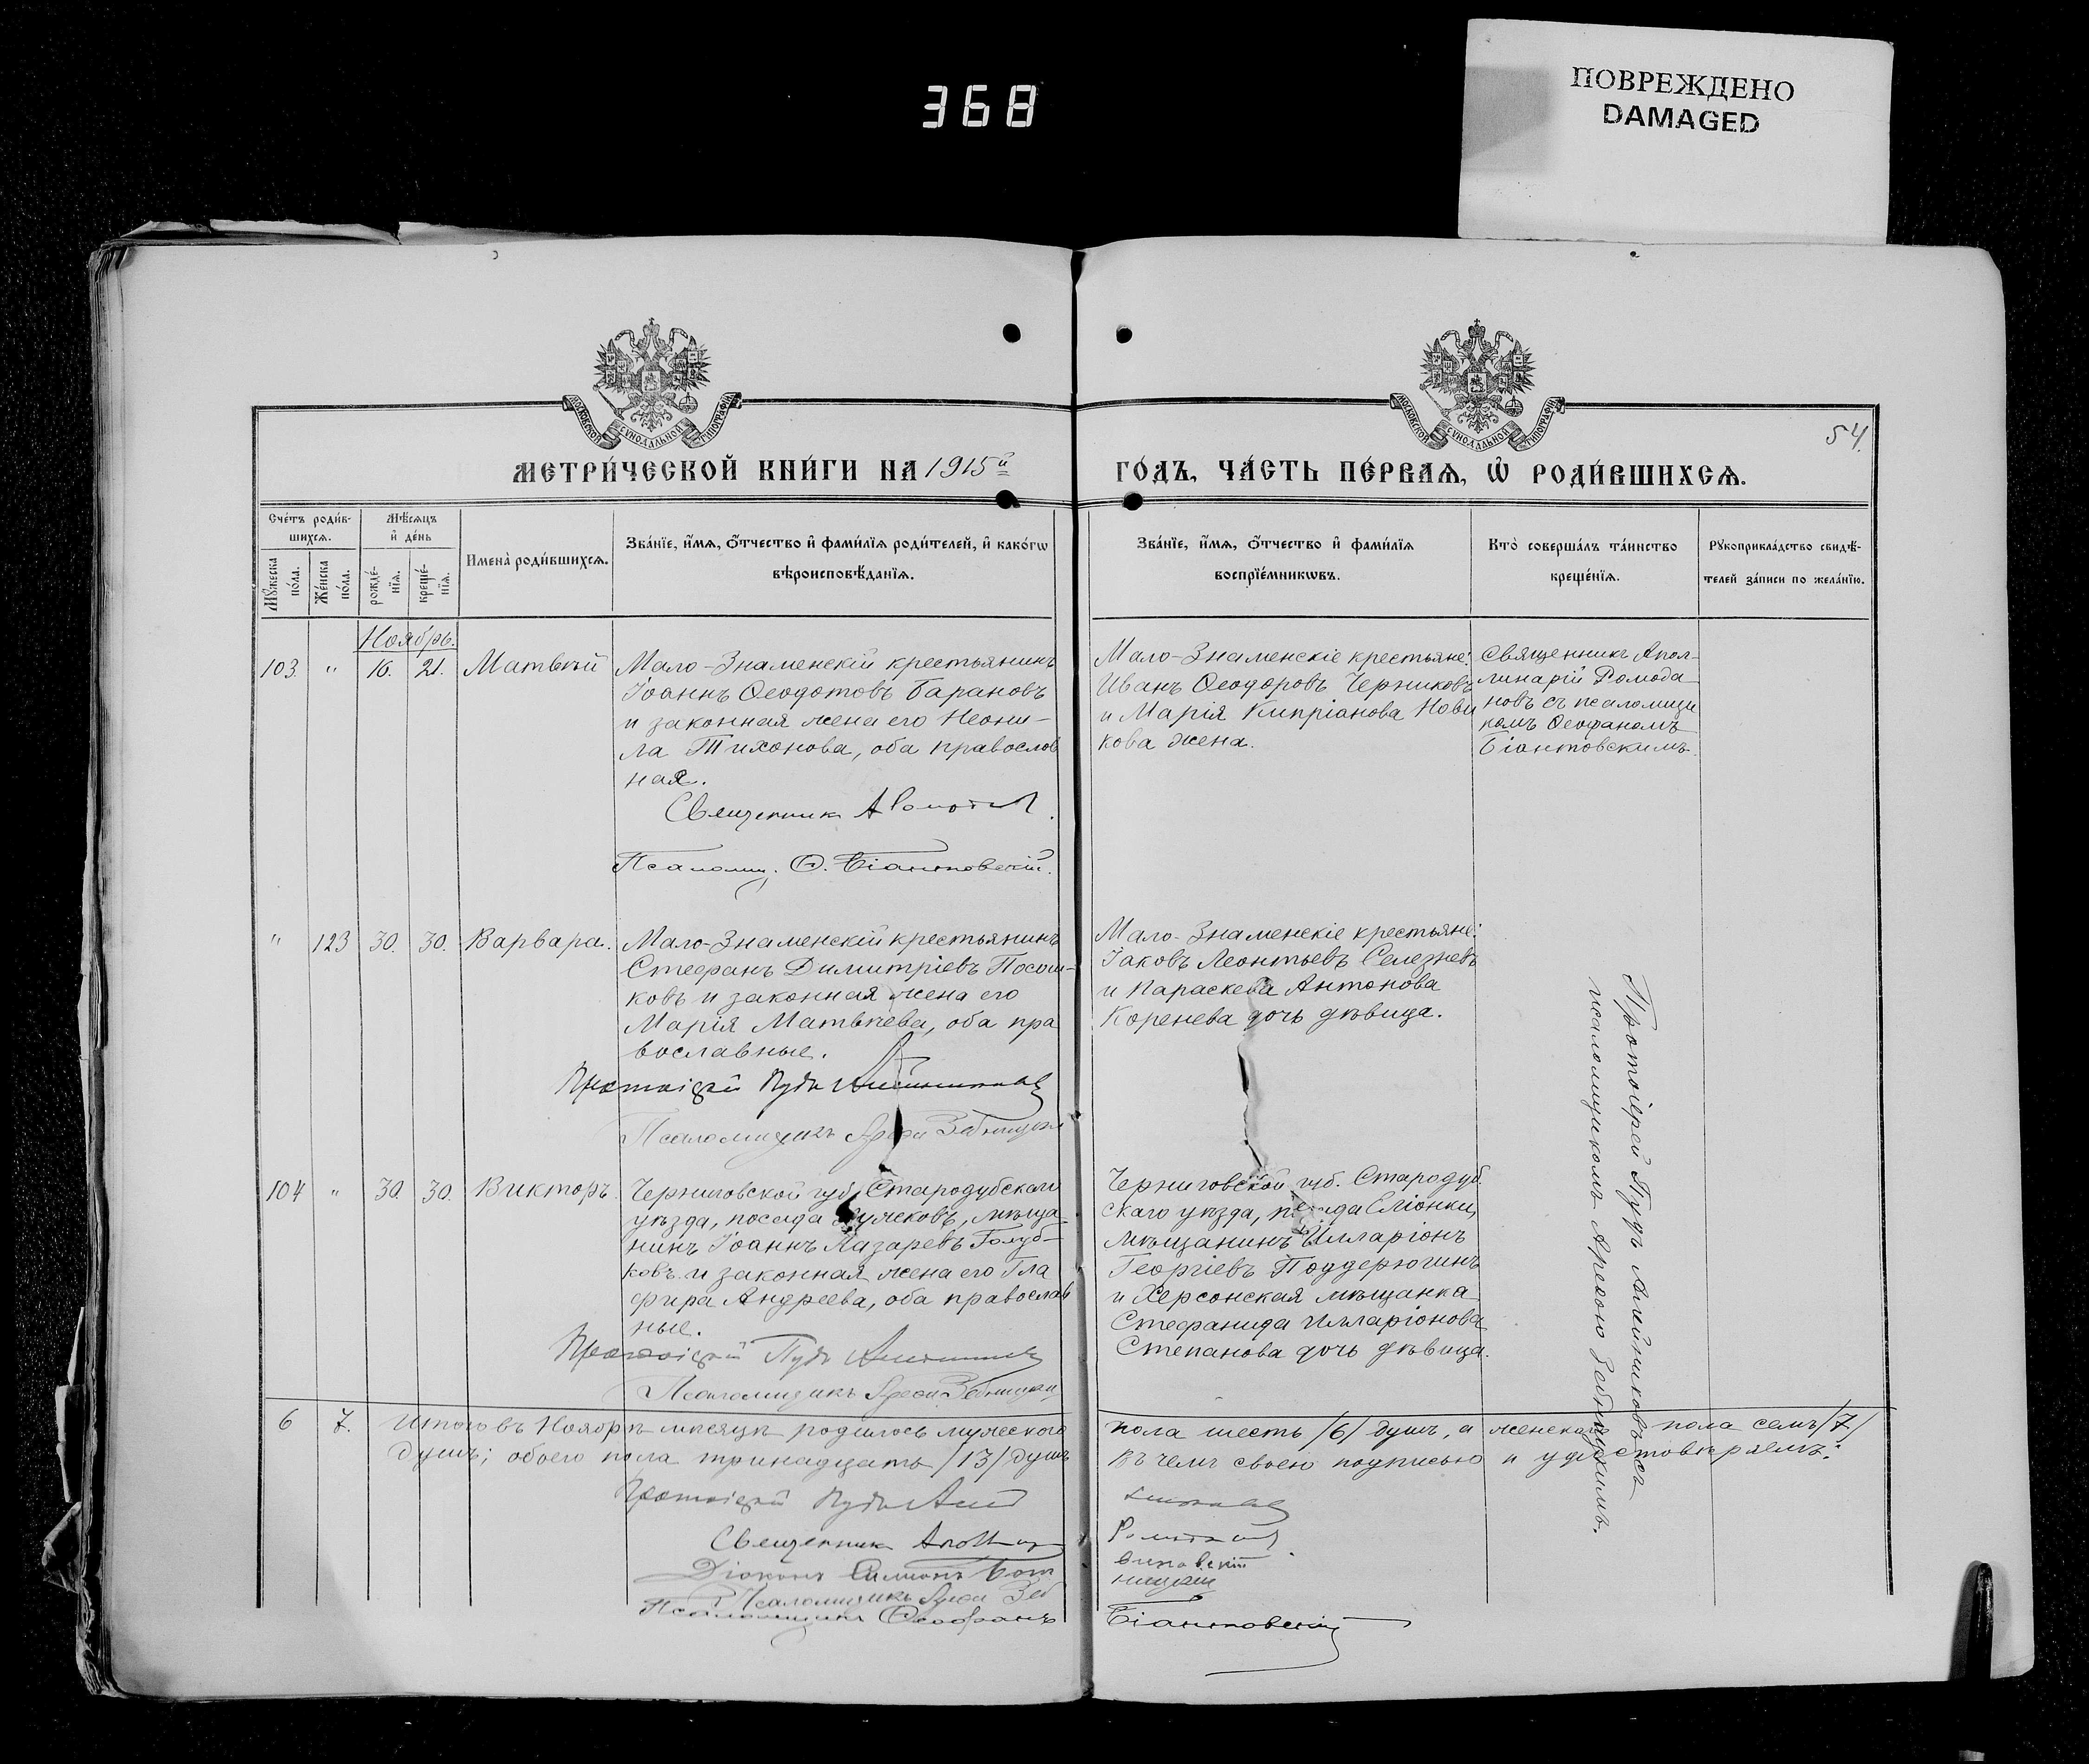 368
ПОВРЕЖДЕНО
DAMAGED
МОСКОВСКОЙ СѴНОДАЛЬНОЙ ТИПОГРАФІИ
МОСКОВСКОЙ СѴНОДАЛЬНОЙ ТИПОГРАФІИ
54.
МЕТРИ́ЧЕСКОЙ КНИ́ГИ НА 1915й
ГО́ДЪ, ЧА́СТЬ ПЕ́РВАѦ, Ѡ҆ РОДИ́ВШИХСѦ.
Сче́тъ роди́в-
шихсѧ.
Мѹ́жеска по́ла.
Же́нска по́ла.
Мѣ́сѧцъ и҆ де́нь
рожде́-
нїѧ.
креще́-
нїѧ.
И҆мена̀ роди́вшихсѧ.
Зва́нїе, и҆́мѧ, ѻ҆́тчество и҆ фами́лїѧ роди́телей, и҆ како́гѡ
вѣроисповѣ́данїѧ.
Зва́нїе, и҆́мѧ, ѻ҆́тчество и҆ фами́лїѧ
воспрїе́мникѡвъ.
Кто̀ соверша́лъ та́инство
креще́нїѧ.
Рѹкоприкла́дство свидѣ́-
телей за́писи по жела́нїю.
Ноябрь.
103. " 16. 21. Матвѣй
Мало-Знаменскій крестьянинъ
Іоаннъ Ѳеодотовъ Барановъ
и законная жена его Неони-
ла Тихонова, оба православ
ная.
Священникъ А
Псаломщ. Ѳ. Біантовскій.
Мало-Знаменскіе крестьяне:
Иванъ Ѳеодоровъ Черниковъ
и Марія Кипріанова Нови
кова жена.
Священникъ Апол-
линарій Ромода
новъ съ псаломщи
комъ Ѳеофаномъ
Біантовскимъ.
" 123 30. 30. Варвара.
Мало-Знаменскій крестьянинъ
Стефанъ Димитріевъ Посош-
ковъ и законная жена его
Марія Матвѣева, оба пра
вославные.
Протоіерей Пудъ Алейниковъ
Псаломщикъ
Мало-Знаменскіе крестьяне:
Іаковъ Леонтьевъ Селезневъ
и Параскева Антонова
Коренева дочь дѣвица.
Протоіерей Пудъ Алейниковъ съ
псаломщикомъ
104 " 30. 30. Викторъ.
Черниговской губ. Стародубскаго
уѣзда, посада мѣща-
нинъ Іоаннъ Лазаревъ Голуб-
ковъ и законная жена его Гла
фира Андреева, оба православ
ные.
Протоіерей Пудъ Алейниковъ
Псаломщикъ
Черниговской губ. Стародуб
скаго уѣзда, посада Еліонки,
мѣщанинъ Илларіонъ
Георгіевъ Поддерюгинъ
и Херсонская мѣщанка
Стефанида Илларіонова
Степанова дочь дѣвица.
6 7. Итого въ Ноябрѣ мѣсяцѣ родилось мужескаго пола шесть /6/ душъ, а женскаго пола семь /7/
душъ; обоего пола тринадцать /13/ душъ въ чемъ своею подписью и удостовѣряемъ:
Протоіерей Пудъ Алейниковъ
Священникъ
Діаконъ Симеонъ
Псаломщикъ
Псаломщикъ Ѳеофанъ Біантовскій